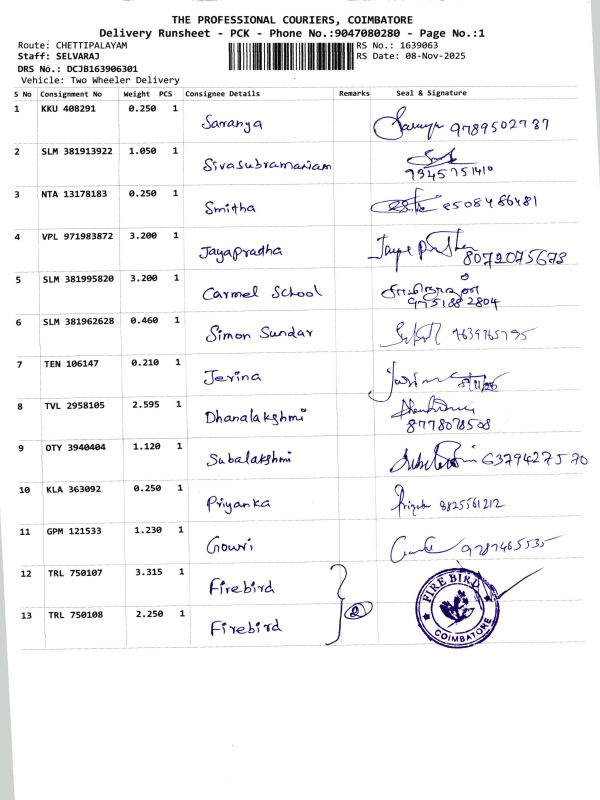 THE PROFESSIONAL COURIERS, COIMBATORE
Delivery Runsheet - PCK - Phone No.:9047080280 - Page No.:1
Route: CHETTIPALAYAM RS No.: 1639063
Staff: SELVARAJ RS Date: 08-Nov-2025
DRS No.: DCJB163906301
Vehicle: Two Wheeler Delivery
S No Consignment No Weight PCS Consignee Details Remarks Seal & Signature
1 KKU 408291 0.250 1 Saranya 9789502787
2 SLM 381913922 1.050 1 Sivasubramaniam
9345751410
3 NTA 13178183 0.250 1 Smitha 9508486481
4 VPL 971983872 3.200 1 Jayapradha 8072075673
5 SLM 381995820 3.200 1 Carmel School
9751882804
6 SLM 381962628 0.460 1 Simon Sundar
7 TEN 106147 0.210 1 Jerina
8 TVL 2958105 2.595 1 Dhanalakshmi
9 OTY 3940404 1.120 1 Subalakshmi 6379427570
10 KLA 363092 0.250 1 Priyanka 8825561212
11 GPM 121533 1.230 1 Gowri 9787465535
12 TRL 750107 3.315 1 Firebird
2
13 TRL 750108 2.250 1 Firebird
FIRE BIRD
COIMBATORE